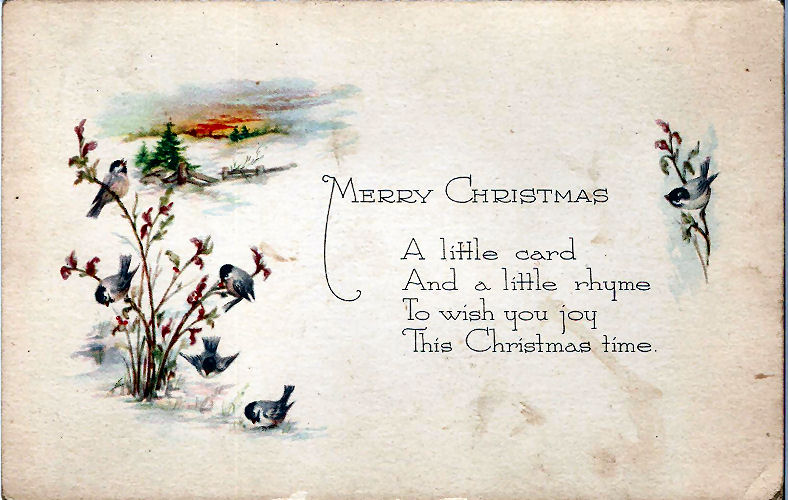 MERRY CHRISTMAS
A little card
And a little rhyme
To wish you joy
This Christmas time.